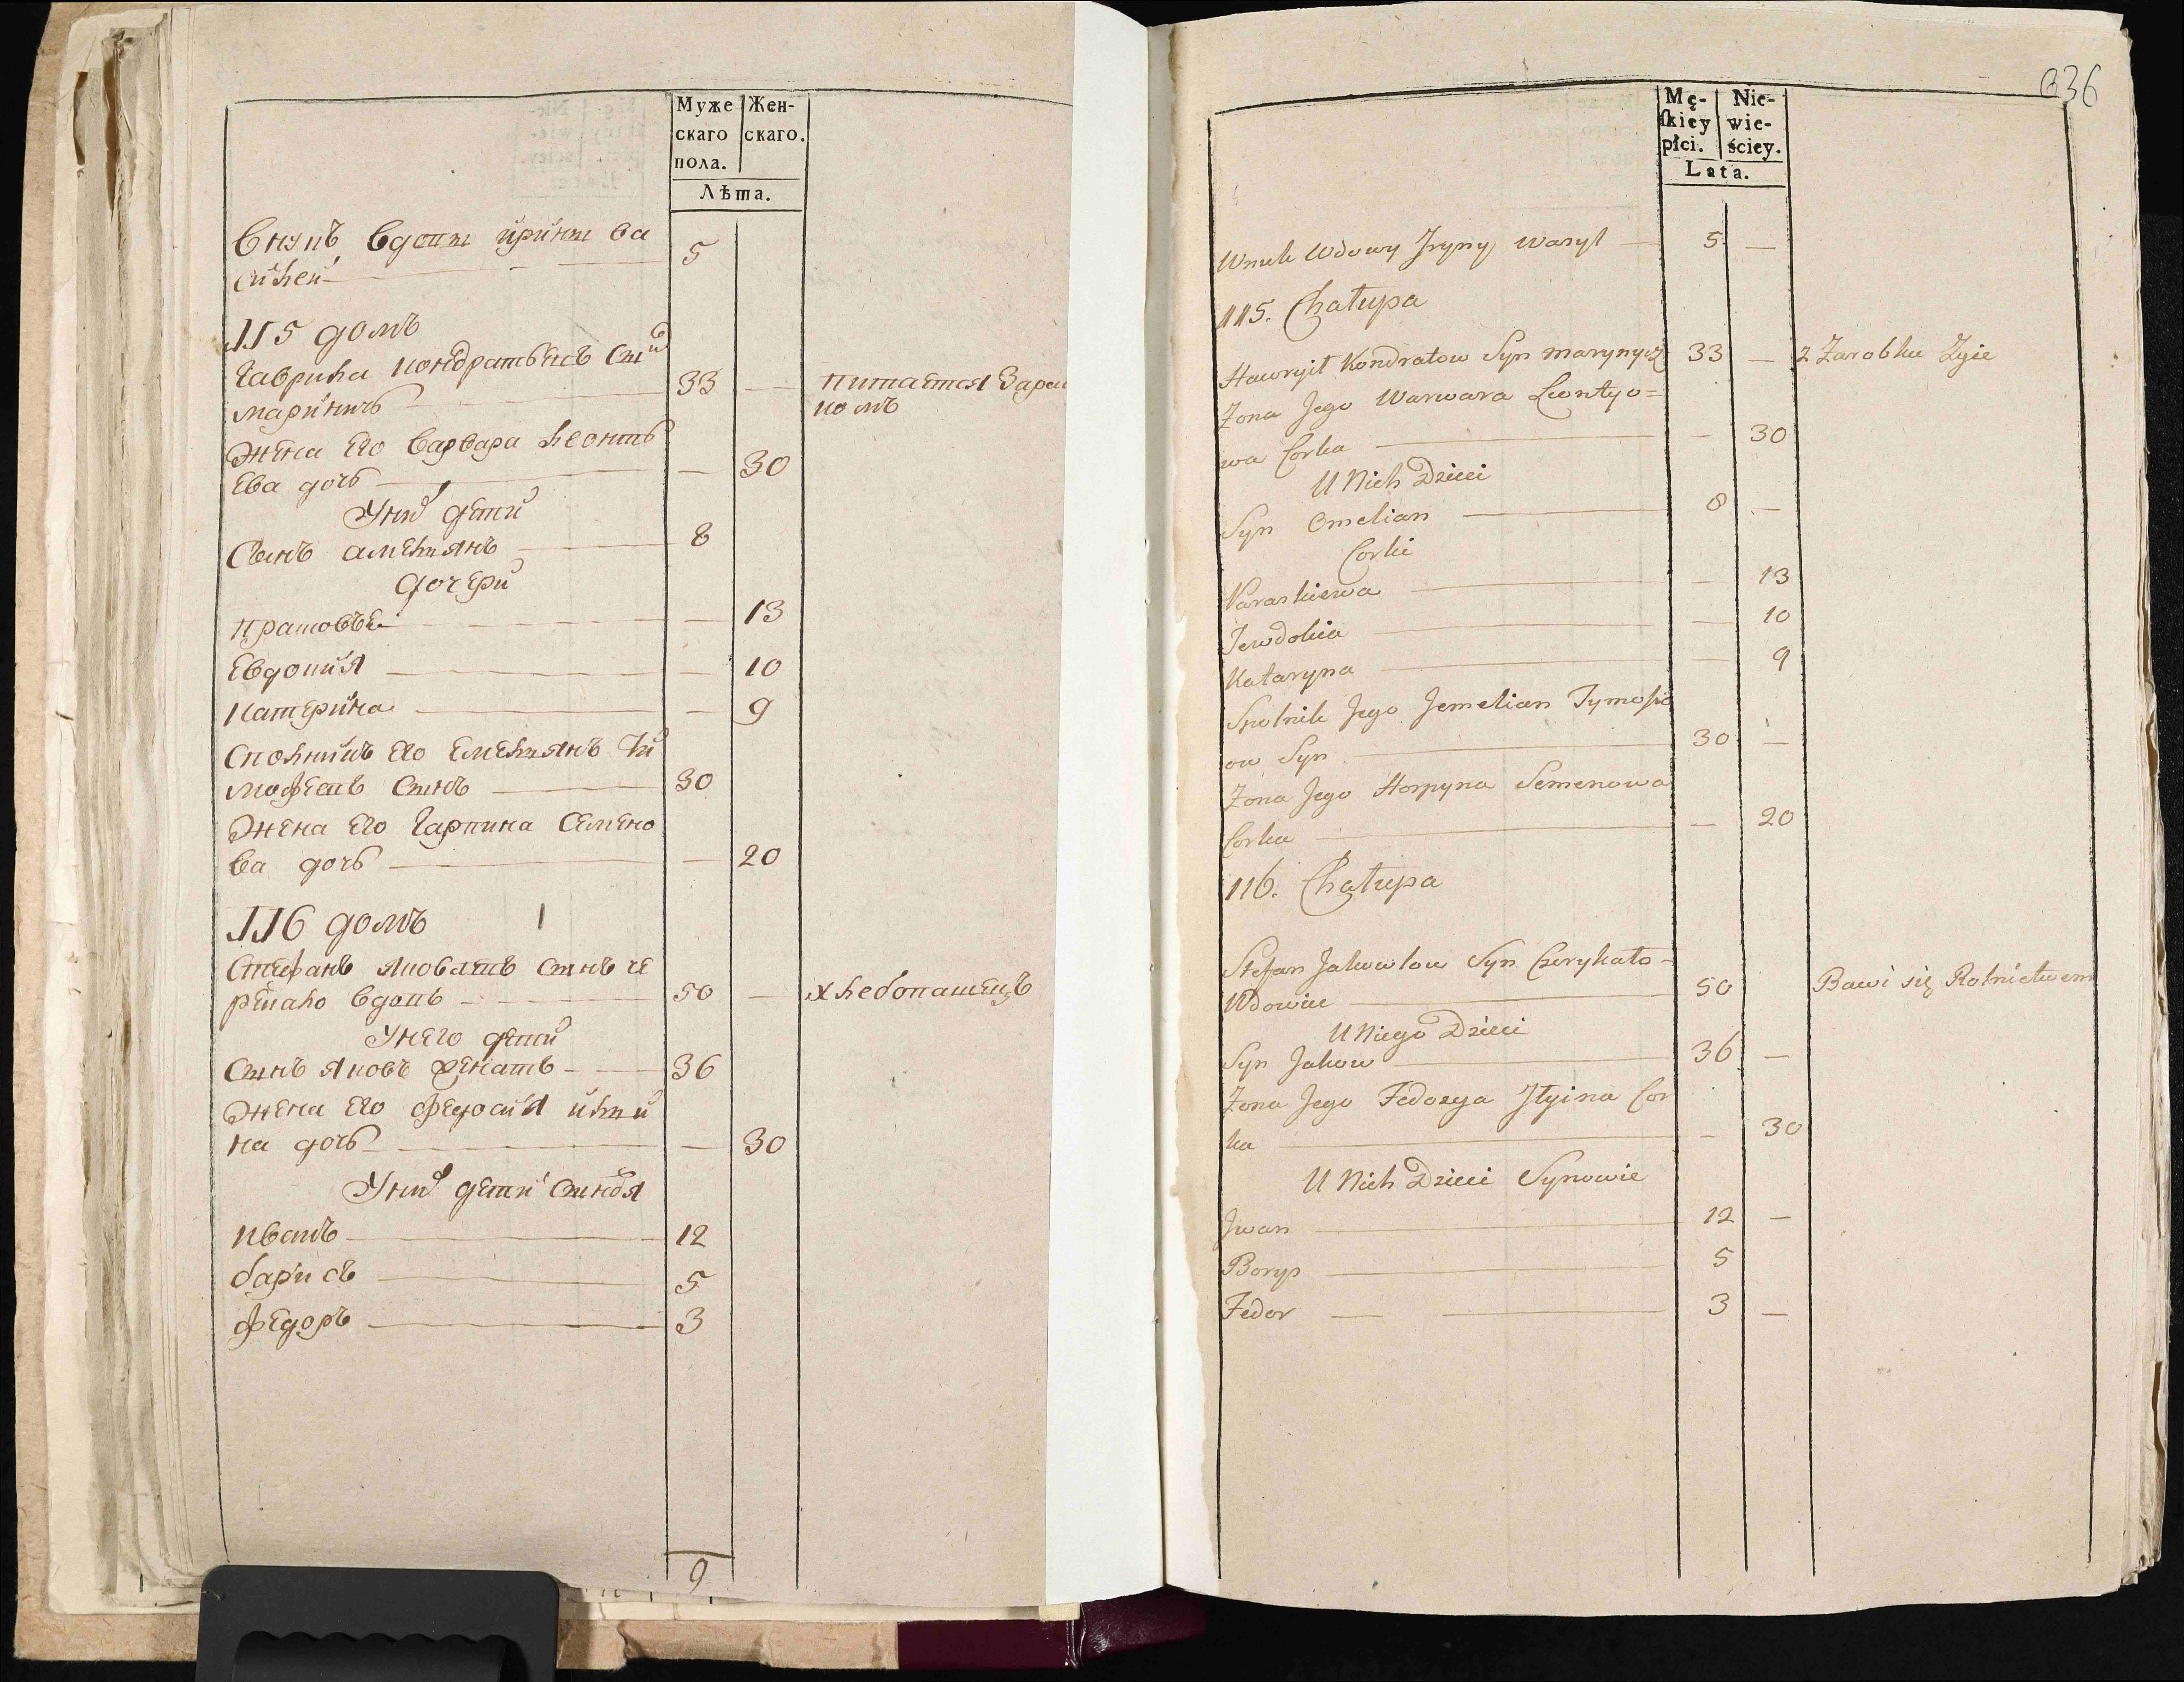 Муже Жен-
скаго скаго.
пола.
Лѣта.
Внукъ вдовы ирины ва
силей 5
115 домъ
Гаврила кондратьевъ сын
мариничъ 33 — питается Зара
комъ
Жена Его варвара леонть
Ева дочь — 30
У них дети
Сынъ амельянъ 8
дочери
прасковья — 13
Евдокия — 10
катерина — 9
Сполникъ Его Емельянъ Ти
мофеевъ сынъ 30
Жена Его Гарпина Семено
ва дочь — 20
116 домъ
Стефанъ яковлевъ сынъ че
рикало вдовъ 50 — хлебопашецъ
У него дети
Сынъ яковъ женатъ 36
Жена Его федосия ильи
на дочь — 30
У них дети сыновья
иванъ 12
барисъ 5
федоръ 3
9
336
Mę- Nie-
ſkiey wie-
płci. ściey.
Lata.
Wnuk Wdowy Jryny Wasyl 5 —
115. Chałupa
Hawryił Kondratow Syn Marynycz 33 — z Zarobku Zyie
Zona Jego Warwara Leontyo=
wa Corka — 30
U Nich Dzieci
Syn Omelian 8 —
Corki
Paraskiewa — 13
Jewdokia — 10
Kataryna — 9
Spolnik Jego Jemelian Tymofie
ow Syn 30 —
Zona Jego Horpyna Semenowa
Corka — 20
116. Chałupa
Stefan Jakowlow Syn Czerykało-
Wdowiec 50 Bawi się Rolnictwem
U Niego Dzieci
Syn Jakow 36 —
Zona Jego Fedosya Jłyina Cor
ka — 30
U Nich Dzieci Synowie
Jwan 12 —
Borys 5
Fedor 3 —